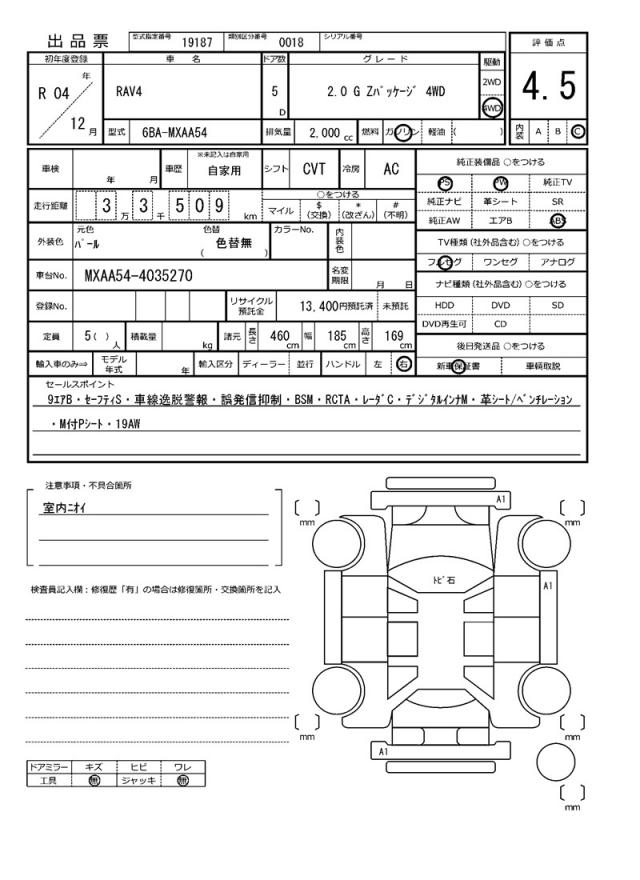 出品票 型式指定番号 19187 類別区分番号 0018 シリアル番号
評価点
4.5
内装 A B C
初年度登録 車名 ドア数 グレード 駆動
R 04 年 12 月
RAV4 5 D 2.0 G Zパッケージ 4WD
2WD
4WD
型式 6BA-MXAA54 排気量 2,000 cc 燃料 ガソリン 軽油 ( )
車検 年 月 車歴 ※未記入は自家用 自家用 シフト CVT 冷房 AC
走行距離 3 万 3 千 5 0 9 km
○をつける
マイル $(交換) *(改ざん) #(不明)
外装色 元色 パール 色替 色替無 ( ) カラーNo. 内装色
車台No. MXAA54-4035270 名変期限 月 日
登録No. リサイクル預託金 13,400円預託済 未預託
定員 5( ) 人 積載量 kg 諸元 長さ 460 cm 幅 185 cm 高さ 169 cm
輸入車のみ⇒ モデル年式 年 輸入区分 ディーラー 並行 ハンドル 左 右
純正装備品 ○をつける
PS PW 純正TV
純正ナビ 革シート SR
純正AW エアB ABS
TV種類(社外品含む)○をつける
フルセグ ワンセグ アナログ
ナビ種類(社外品含む)○をつける
HDD DVD SD
DVD再生可 CD
後日発送品 ○をつける
新車保証書 車輌取説
セールスポイント
9エアB・セーフティS・車線逸脱警報・誤発信抑制・BSM・RCTA・レーダC・デジタルインナM・革シート/ベンチレーション
・M付Pシート・19AW
注意事項・不具合箇所
室内ニオイ
検査員記入欄:修復歴「有」の場合は修復箇所・交換箇所を記入
A1
mm
mm
トビ石
A1
mm
mm
A1
mm
ドアミラー キズ ヒビ ワレ
工具 無 ジャッキ 無